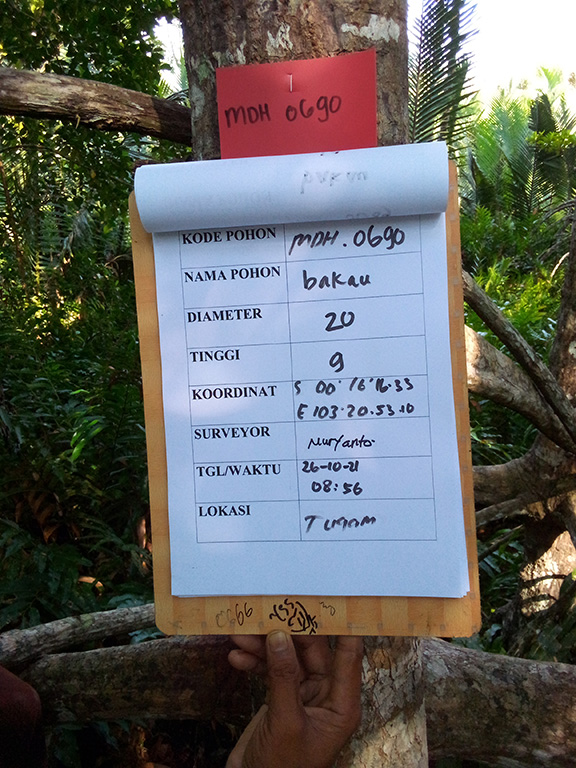 MDH 0690
KODE POHON MDH.0690
NAMA POHON bakau
DIAMETER 20
TINGGI 9
KOORDINAT S 00°16'16.33
E 103.20.53.10
SURVEYOR Nuryanto
TGL/WAKTU 26-10-21
08:56
LOKASI
0666